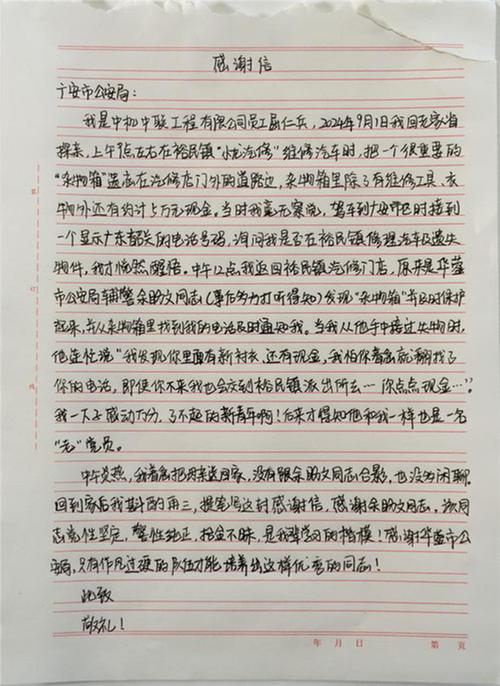 感谢信
广安市公安局：
我是中机中联工程有限公司员工屈仁兵，2024年9月1日我回老家省
探亲，上午9点左右在裕民镇“小龙汽修”维修汽车时，把一个很重要的
“杂物箱”遗忘在汽修店门外的道路边，杂物箱里除了有维修工具、衣
物外还有约计5万元现金。当时我毫无察觉，驾车到广安郊区时接到
一个显示广东韶关的电话号码，询问我是否在裕民镇修理汽车及遗失
物件，我才恍然醒悟。中午12点我返回裕民镇汽修门店，原来是华蓥
市公安局辅警余的文同志（事后多方打听得知）发现“杂物箱”并及时保护
起来，并从杂物箱里找到我的电话及时通知我。当我从他手中接过失物时，
他连忙说“我发现你里面有新衬衣、还有现金，我怕你着急就翻找了
你的电话，即使你不来我也会交到裕民镇派出所去……你点点现金…”。
我一下子感动万分，了不起的新青年啊！后来才得知他和我一样也是一名
“老”党员。
中午炎热，我着急把母亲送回家，没有跟余的文同志合影，也没多闲聊。
回到家后我斟酌再三，提笔写这封感谢信，感谢余的文同志，该同
志党性坚定，警性纯正，拾金不昧，是我辈学习的楷模！感谢华蓥市公
安局，只有作风过硬的队伍才能培养出这样优秀的同志！
此致
敬礼！
年 月 日 第 页
装
订
线